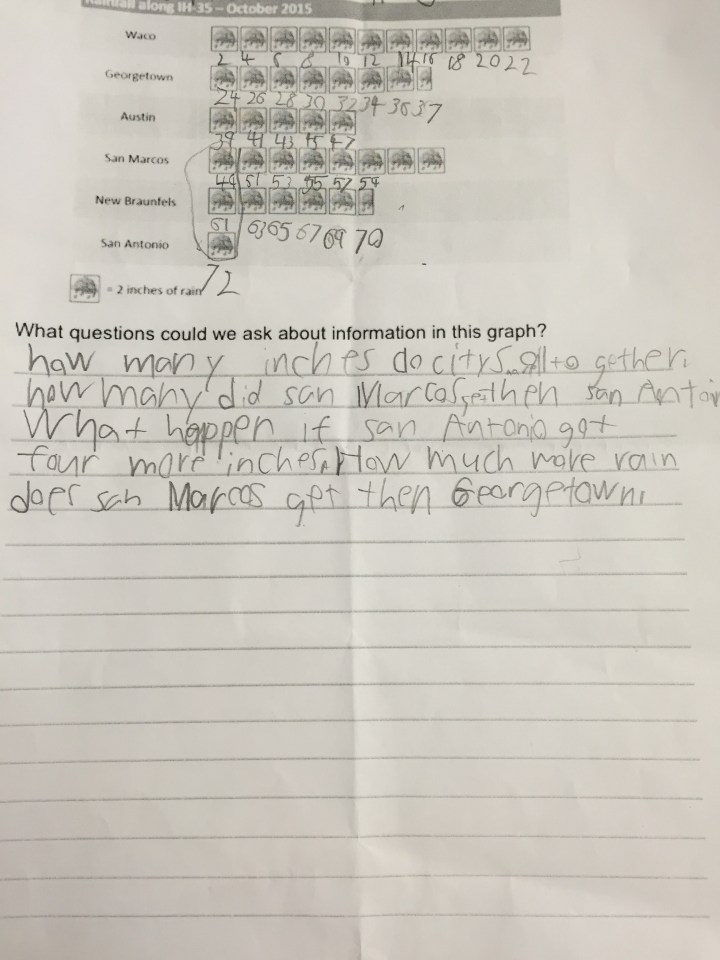 Rainfall along IH-35 – October 2015
Waco
2 4 6 8 10 12 14 16 18 20 22
Georgetown
24 26 28 30 32 34 36 37
Austin
39 41 43 45 47
San Marcos
49 51 53 55 57 59
New Braunfels
61 63 65 67 69 70
San Antonio
72
= 2 inches of rain
What questions could we ask about information in this graph?
how many inches do citys all to gether.
how many did san Marcos then san Antoin
What happen if san Antonio got
four more inches. How much more rain
does san Marcos get then Georgetown.